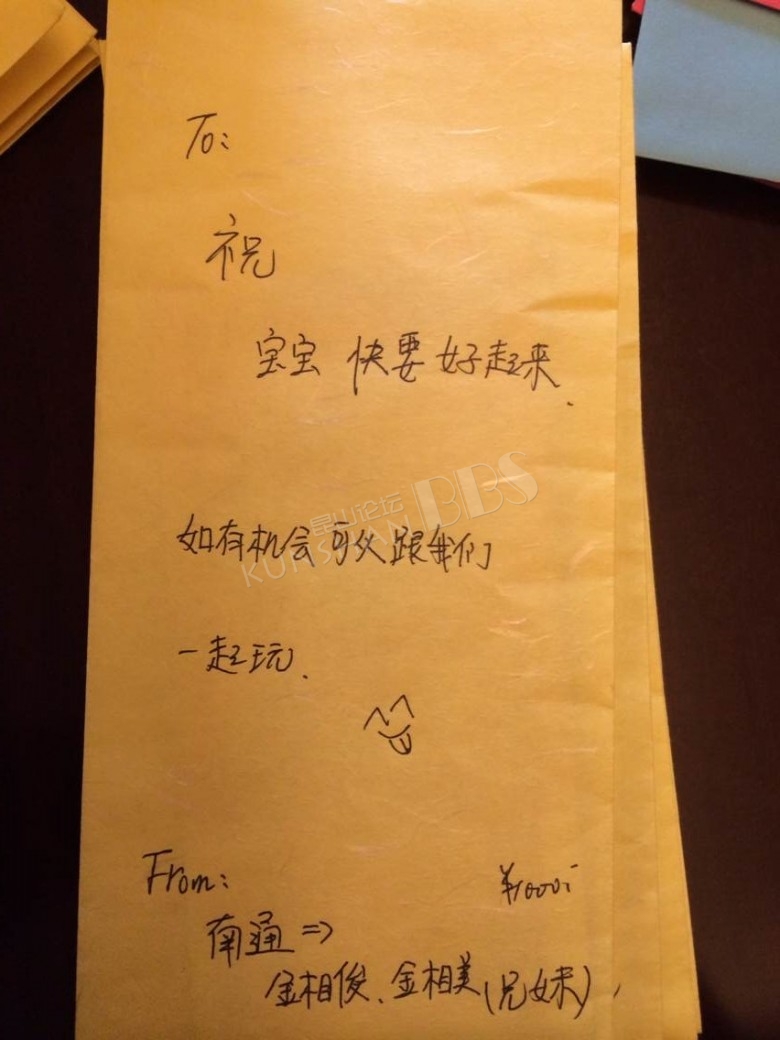 To:
祝
宝宝 快要好起来.
昆山论坛 BBS
KUNSHAN
如有机会可以跟我们
一起玩.
From:
¥1000元
南通 =>
金相俊、金相美(兄妹)